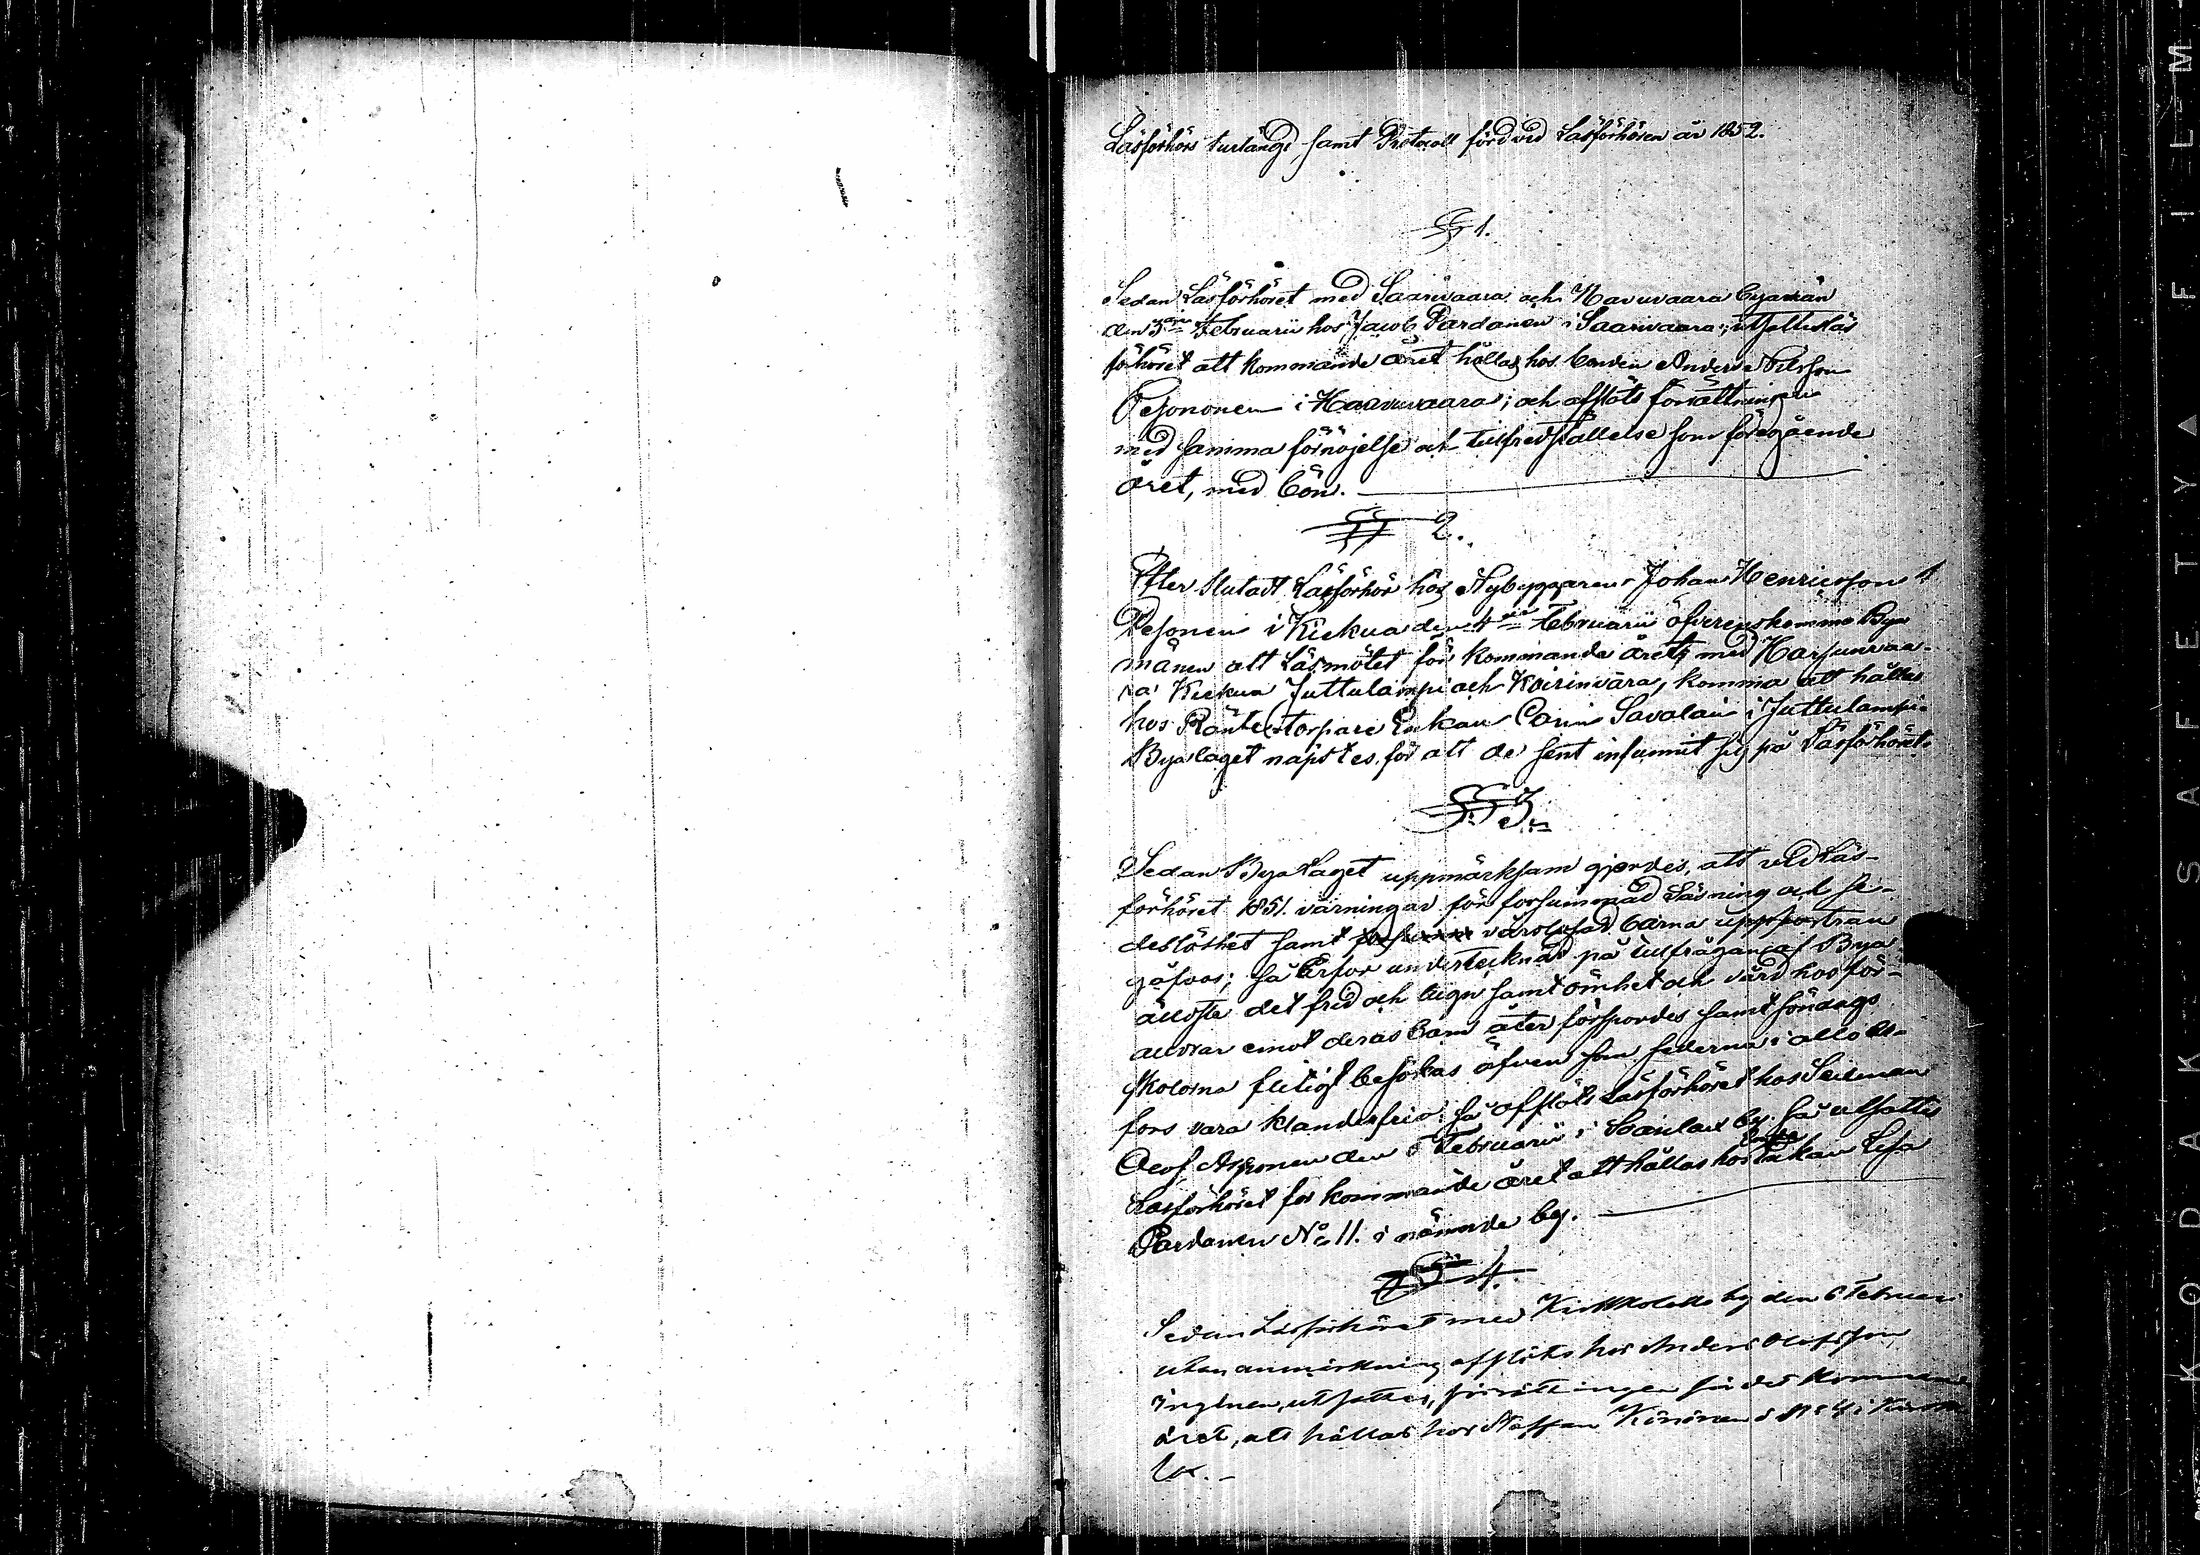 Läsförhörs turlängd, samt Protocoll förd vid Läsförhören år 1852.
§ 1.
Sedan Läsförhöret med Saarivaara och Havuvaara byamän
den 3dje Februarii hos Jacob Pardanen i Saarivaara; utsattes läs
förhöret att kommande året hållas hos bonden Anders Nilsson
Pesononen i Haavuvaara; och afslöts förrättningen
med samma förnöjelse och tillfredställelse som föregående
året, med bön.
§ 2.
Efter slutadt Läsförhör hos Nybyggaren Johan Henricsson
Pesonen i Kiekua den 4de Februarii öfverenskommo Bya
männen att Läsmötet för kommande året med Harjunvaa-
ra Kiekua Juttulampi och Koirinvara, komma att hållas
hos Räntetorpare Enkan Carin Savolain i Juttulampi.
Byalaget näpstes för att de sent infunnit sig på Läsförhöret.
§ 3.
Sedan Byalaget uppmärksam gjordes, att vid Läs-
förhöret 1851. varningar för försummad Läsning och se-
deslöshet samt vårdslösad barna uppfostran
gåfvos; så Erfor undertecknad på tillfrågan af Bya
äldste det frid och lugn samt ömhet och vård hos för-
äldrar emot deras barn åter förspordes samt söndags
skolorna flitigt besökas äfven som sederna i allo
fors vara klanderfria. så afslöts Läsförhöret hos
Olof Asponen den 5 Februarii i by. så utsattes
Läsförhöret för kommande året att hållas hos Enkan Lisa
Pardanen No 11. i nämnde by.
§ 4.
Sedan Läsförhöret med by den 6 Februari
utan anmärkning afslöts hos Anders Olofsson
utsattes, förrättningen för det kommande
året, att hållas hos Staffan Kinonen å No 4 i